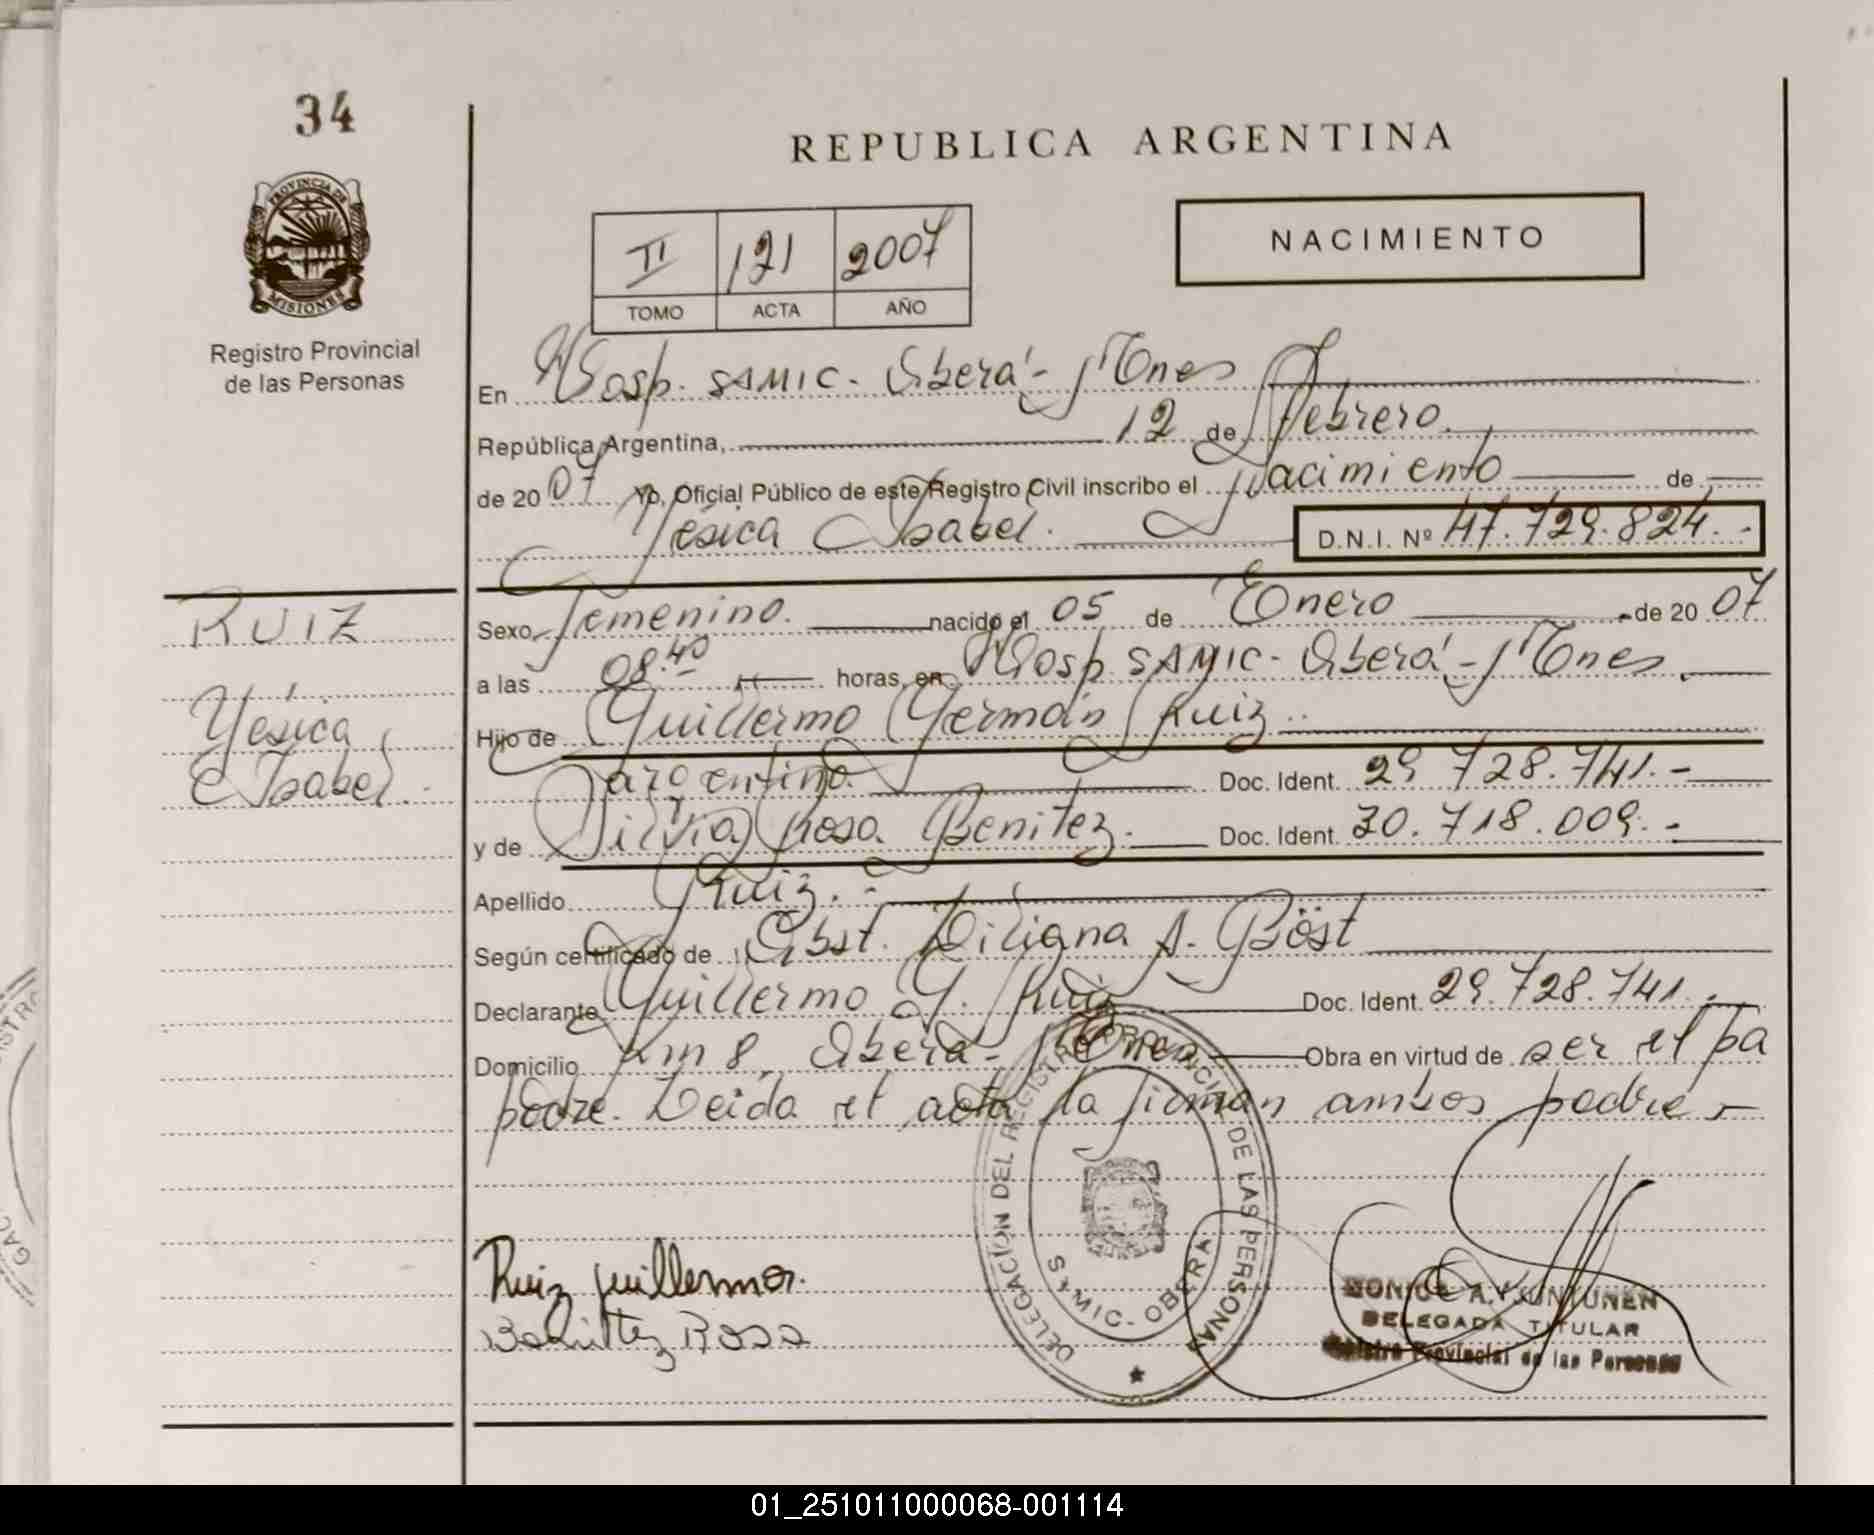 34
REPUBLICA ARGENTINA
PROVINCIA DE
MISIONES
Registro Provincial
de las Personas
II 121 2007
TOMO ACTA AÑO
NACIMIENTO
En Hosp. SAMIC. Oberá - Mnes
República Argentina, 12 de Febrero.
de 2007 Yo, Oficial Público de este Registro Civil inscribo el Nacimiento de
Yésica Isabel. D.N.I. Nº 47.729.824.-
RUIZ
Yésica
Isabel.
Sexo Femenino. nacido el 05 de Enero de 2007
a las 08.40 horas, en Hosp. SAMIC - Oberá - Mnes.
Hijo de Guillermo Germán Ruiz.
argentino. Doc. Ident. 29.728.741.-
y de Silvia Rosa Benitez. Doc. Ident. 30.718.009.-
Apellido Ruiz.-
Según certificado de Obst. Liliana A. Böst
Declarante Guillermo G. Ruiz Doc. Ident. 29.728.741.-
Domicilio Km 8, Oberá - Mnes Obra en virtud de ser el pa
padre. Leida el acta la firman ambos padres
DELEGACIÓN DEL REGISTRO PROVINCIAL DE LAS PERSONAS
SAMIC - OBERA
Ruiz guillermo.
Benittez Rosa
MONICA A.
DELEGADA TITULAR
Registro Provincial de las Personas
01_251011000068-001114